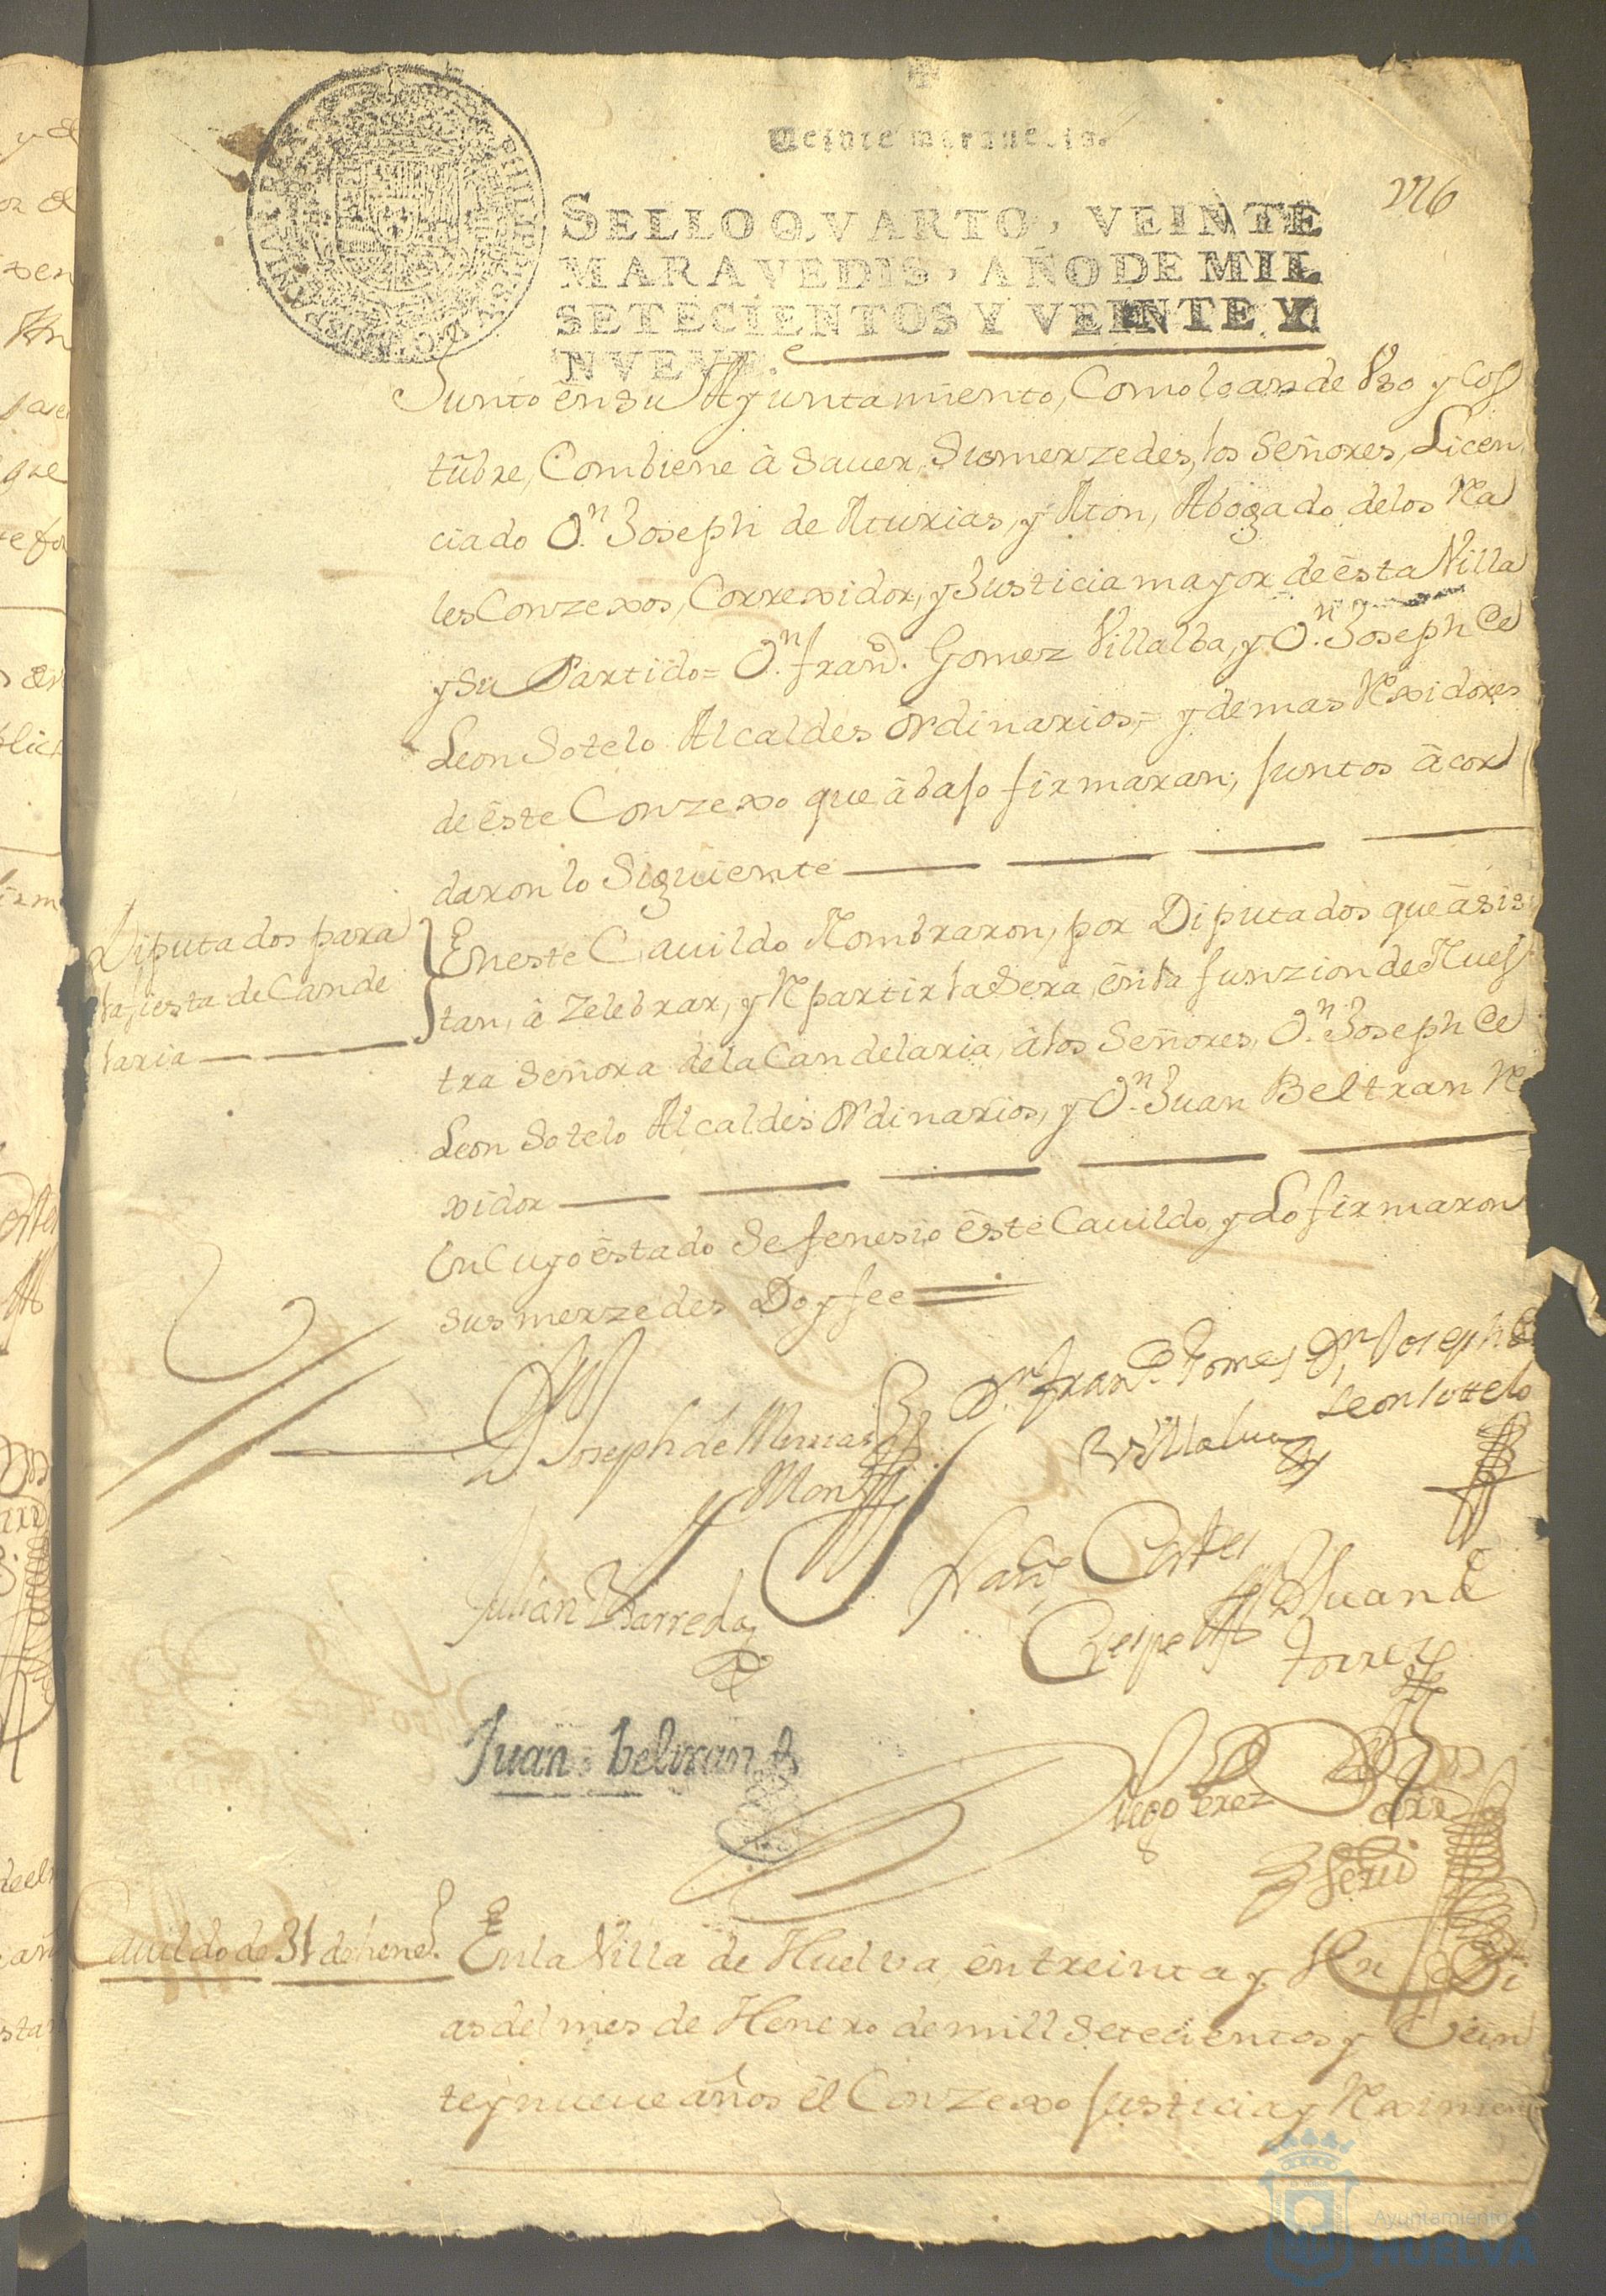 Veinte marauedis
SELLO QVARTO, VEINTE
MARAVEDIS, AÑO DE MIL
SETECIENTOS Y VEINTE Y
NVEVE.
Junto en su Ayuntamiento, Como lo an de Vso y Cos
tũbre, Combiene â Sauer, Sus merzedes, los Señores, Licen
ciado Dn. Joseph de Aturias, y Mon, Abogado de los Rea
les Conzexos, Correxidor, y Justicia mayor de ésta Villa
y Su Partido = Dn. Franco. Gomez Villalba, y Dn. Joseph de
Leon Sotelo Alcaldes Ordinarios, = y demas Rexidores
de éste Conzexo que âbajo firmaran; Juntos âcor
daron lo Siguiente
Diputados para
la fiesta de Cande
laria
En este Cauildo Nombraron, por Diputados que âsis
tan, â Zelebrar, y Rpartir la Sera, én la funzion de Nues
tra Señora de la Candelaria, â los Señores, Dn. Joseph de
Leon Sotelo Alcaldes Ordinarios, y Dn. Juan Beltran Re
xidor
En Cuyo éstado Se fenesio éste Cauildo, y Lo firmaron
sus merzedes Doy fee
Joseph de
Mon
Dn. Franco. Gomez
Villalua
Dn. Joseph de
Leon Sottelo
Julian Barreda
Franco Cortes
Crespo
Juan de
Torres
Juan beltran
Diego Perez
Cauildo de 31 de heneo.
En la Villa de Huelva, én treinta y Un Di
as del mes de Henero de mill Setecientos y Vein
te y nueue años él Conzexo Justicia y Rximien
Ayuntamiento de
HUELVA